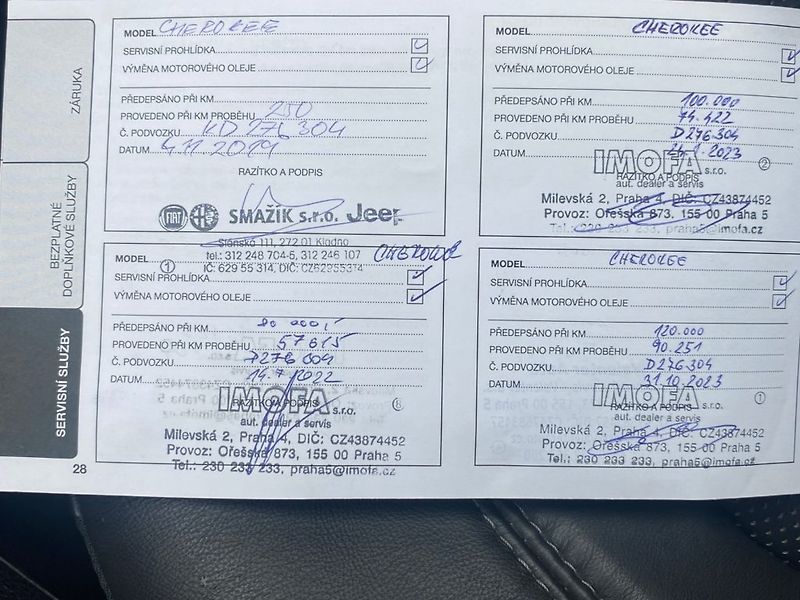 ZÁRUKA
BEZPLATNÉ
DOPLŇKOVÉ SLUŽBY
SERVISNÍ SLUŽBY
28
MODEL CHEROKEE
SERVISNÍ PROHLÍDKA
VÝMĚNA MOTOROVÉHO OLEJE
PŘEDEPSÁNO PŘI KM
PROVEDENO PŘI KM PROBĚHU 250
Č. PODVOZKU KD276304
DATUM 4.11.2019
RAZÍTKO A PODPIS
FIAT SMAŽÍK s.r.o. Jeep
Slánská 111, 272 01 Kladno
tel.: 312 248 704-5, 312 246 107
IČ: 629 55 314, DIČ: CZ62955314
MODEL CHEROKEE
SERVISNÍ PROHLÍDKA
VÝMĚNA MOTOROVÉHO OLEJE
PŘEDEPSÁNO PŘI KM
PROVEDENO PŘI KM PROBĚHU 57615
Č. PODVOZKU D276304
DATUM 14.7.2022
RAZÍTKO A PODPIS
IMOFA s.r.o.
aut. dealer a servis
Milevská 2, Praha 4, DIČ: CZ43874452
Provoz: Ořešská 873, 155 00 Praha 5
Tel.: 230 233 233, praha5@imofa.cz
MODEL CHEROKEE
SERVISNÍ PROHLÍDKA
VÝMĚNA MOTOROVÉHO OLEJE
PŘEDEPSÁNO PŘI KM 100.000
PROVEDENO PŘI KM PROBĚHU 74.422
Č. PODVOZKU D276304
DATUM 24.1.2023
IMOFA s.r.o.
RAZÍTKO A PODPIS
aut. dealer a servis
Milevská 2, Praha 4, DIČ: CZ43874452
Provoz: Ořešská 873, 155 00 Praha 5
Tel.: 230 233 233, praha5@imofa.cz
MODEL CHEROKEE
SERVISNÍ PROHLÍDKA
VÝMĚNA MOTOROVÉHO OLEJE
PŘEDEPSÁNO PŘI KM 120.000
PROVEDENO PŘI KM PROBĚHU 90.251
Č. PODVOZKU D276304
DATUM 31.10.2023
IMOFA s.r.o.
RAZÍTKO A PODPIS
aut. dealer a servis
Milevská 2, Praha 4, DIČ: CZ43874452
Provoz: Ořešská 873, 155 00 Praha 5
Tel.: 230 233 233, praha5@imofa.cz